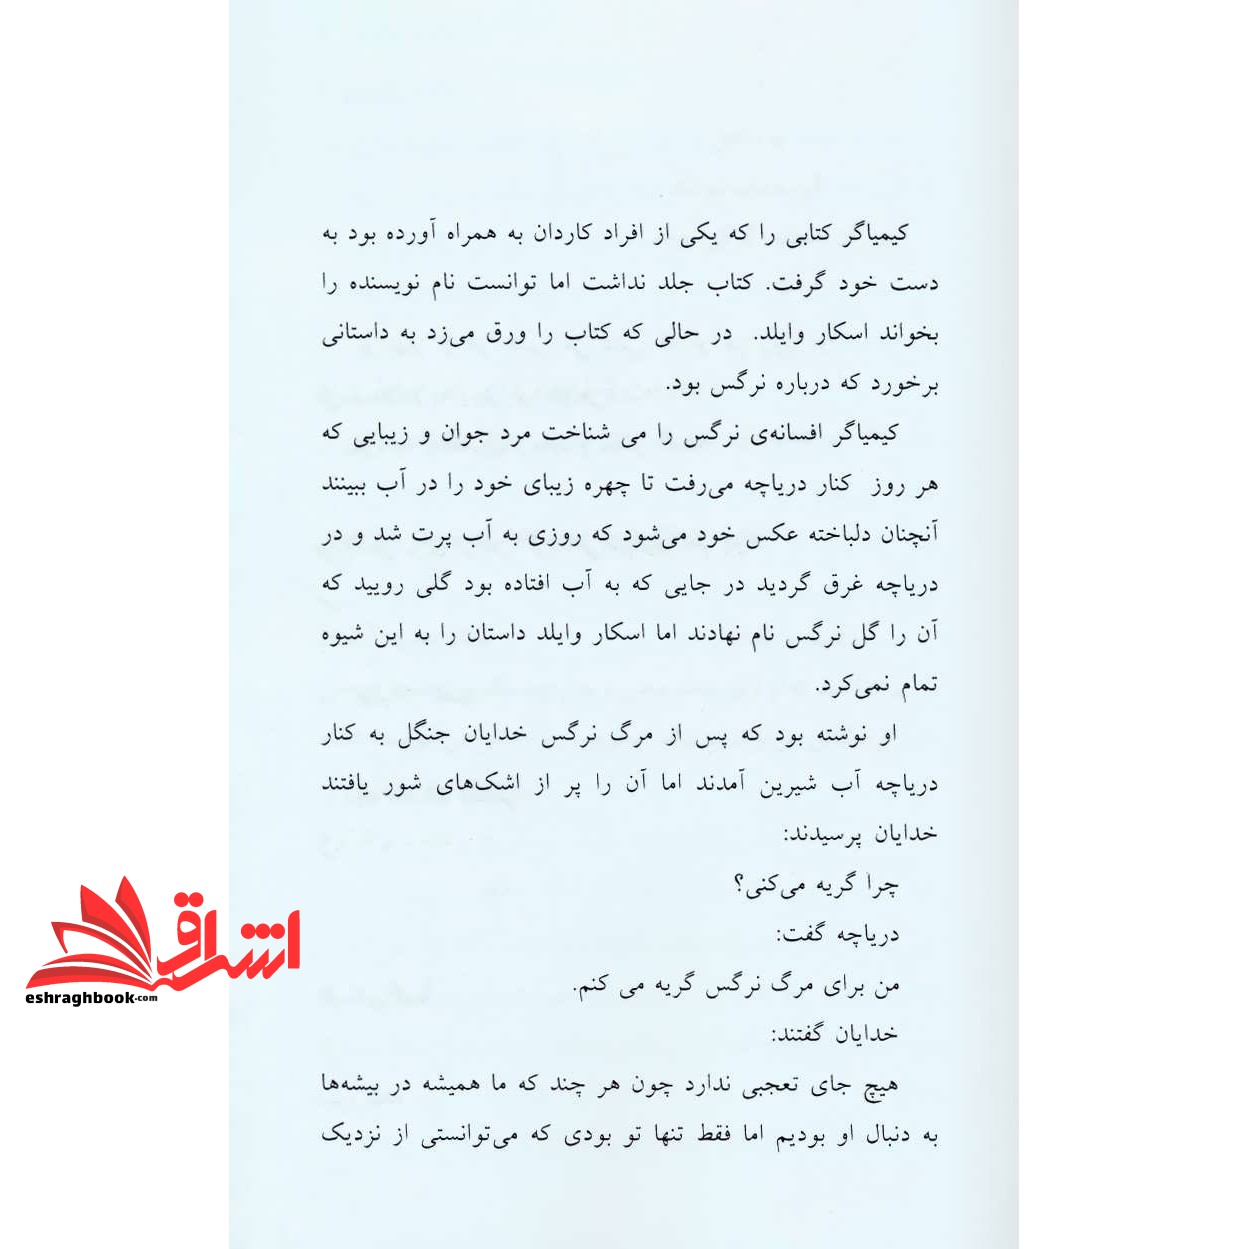 کیمیاگر کتابی را که یکی از افراد کاردان به همراه آورده بود به
دست خود گرفت. کتاب جلد نداشت اما توانست نام نویسنده را
بخواند اسکار وایلد. در حالی که کتاب را ورق می‌زد به داستانی
برخورد که درباره نرگس بود.
کیمیاگر افسانه‌ی نرگس را می شناخت مرد جوان و زیبایی که
هر روز کنار دریاچه می‌رفت تا چهره زیبای خود را در آب ببینند
آنچنان دلباخته عکس خود می‌شود که روزی به آب پرت شد و در
دریاچه غرق گردید در جایی که به آب افتاده بود گلی رویید که
آن را گل نرگس نام نهادند اما اسکار وایلد داستان را به این شیوه
تمام نمی‌کرد.
او نوشته بود که پس از مرگ نرگس خدایان جنگل به کنار
دریاچه آب شیرین آمدند اما آن را پر از اشک‌های شور یافتند
خدایان پرسیدند:
چرا گریه می‌کنی؟
دریاچه گفت:
من برای مرگ نرگس گریه می کنم.
خدایان گفتند:
هیچ جای تعجبی ندارد چون هر چند که ما همیشه در بیشه‌ها
به دنبال او بودیم اما فقط تنها تو بودی که می‌توانستی از نزدیک
اشراق
eshraghbook.com